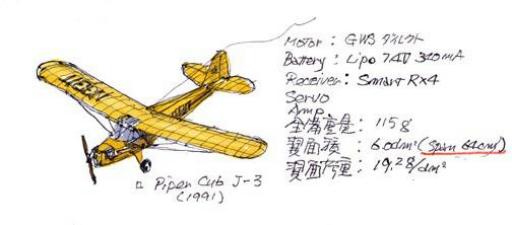 Motor : GWS ダイレクト
Battery : Lipo 7.4V 340mA
Receiver : Smart Rx4
Servo
Amp
全備重量 : 115g
翼面積 : 6.0dm² (Span 64cm)
翼面荷重 : 19.2g/dm²
Piper Cub J-3
(1991)